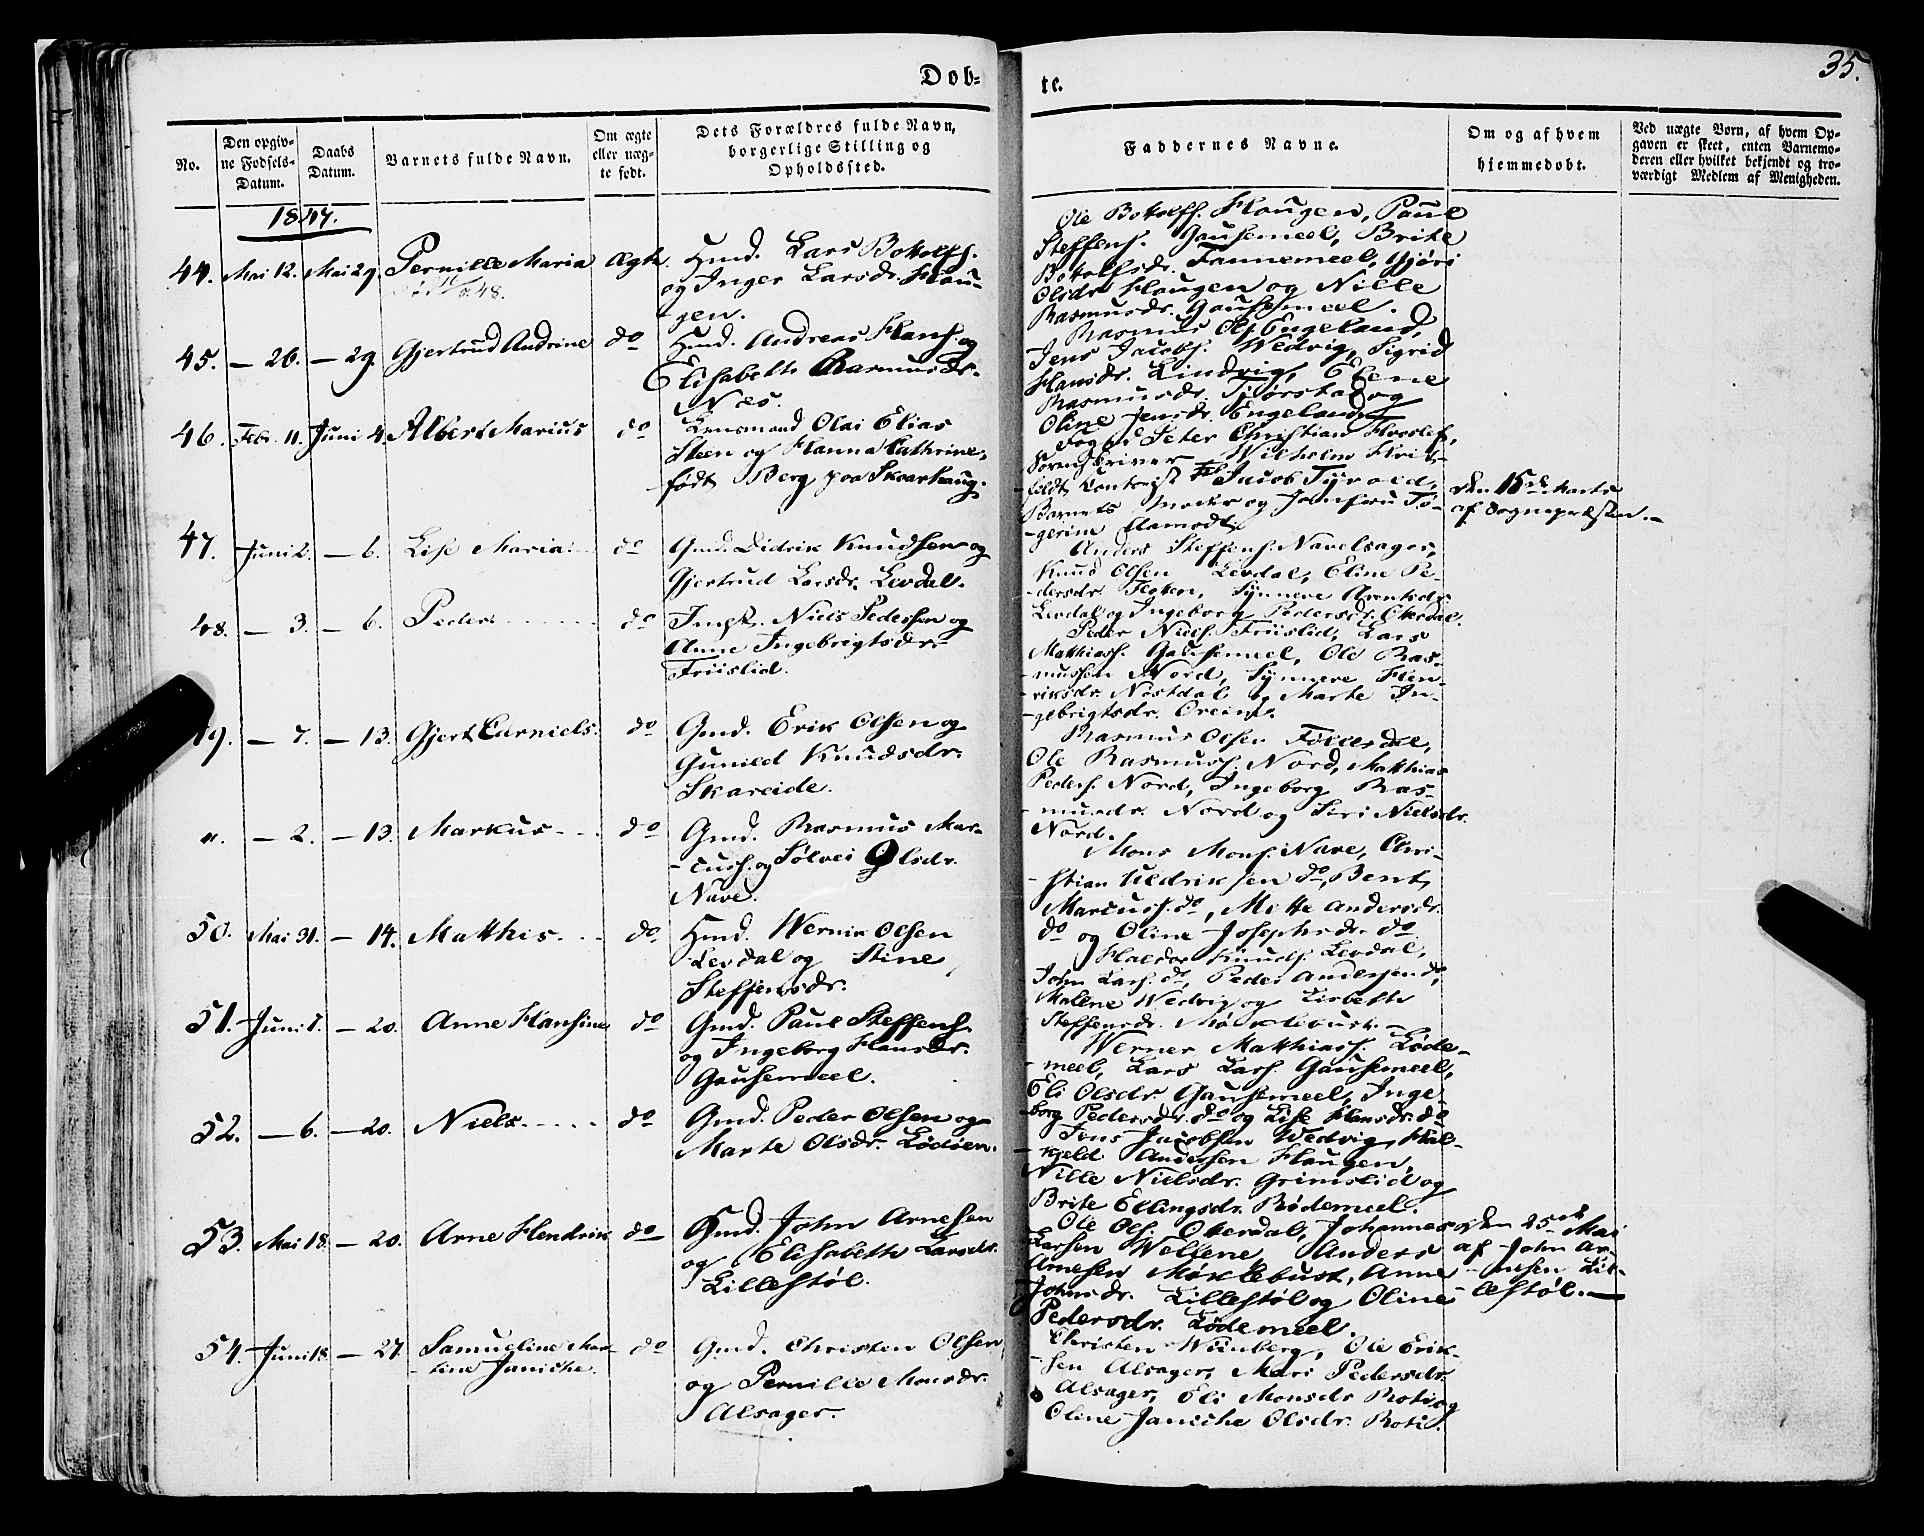 35.
Dob-
te.
No.
Den opgiv-
ne Fødsels-
Datum.
Daabs
Datum.
Barnets fulde Navn.
Om ægte
eller uæg-
te født.
Dets Forældres fulde Navn,
borgerlige Stilling og
Opholdssted.
Faddernes Navne.
Om og af hvem
hjemmedøbt.
Ved uægte Børn, af hvem Op-
gaven er skeet, enten Barnemo-
deren eller hvilket bekjendt og tro-
værdigt Medlem af Menigheden.
1847.
44. Mai 12. Mai 29. Pernille Maria Ægte. Hmd. Lars Botolfs.
og Inger Larsdr. Hou-
gen.
Ole Botolfs. Hougen, Paul
Steffens. Gausemeel, Brite
Botolfsdr. Fannemeel, Gjøri
Olsdr. Hougen og Nille
Rasmusdr. Gausemeel.
45. — 26. — 29. Gjertrud Andrine do Hmd. Andreas Hans. og
Elisabeth Rasmusdr.
Næs.
Rasmus Ols. Engeland,
Jens Jacobs. Wedvig, Sigrid
Hansdr. Lindvig, Elene
Rasmusdr. Tjørstad og
Oline Jensdr. Engeland
46. Febr. 11. Juni 4. Albert Marius do Lensmand Olai Elias
Steen og Hanna Cathrine,
født Berg paa Skaarhaug.
Foged Peter Christian
Sorenskriver Wilhelm
Contorist Jacob
Barnets Moder og Jomfru To-
gerine Aamodt
den 15de Marts
af Sognepræsten.—
47. Juni 2. — 6. Lise Maria. do Gmd. Didrik Knudsen og
Gjertrud Larsdr. Levdal.
Anders Steffens. Navelsager,
Knud Olsen Levdal, Eline Pe-
dersdr. Floten, Synneve
Levdal og Ingeborg Pedersdr. Okerdal.
48. — 3. — 6. Peder do Inds. Niels Pedersen og
Anne Ingebrigtsdr.
Friislid.
Peder Niels. Friislid, Lars
Matthiass. Gausemeel, Ole Ras-
mussen Nord, Synneve Hen-
riksdr. Nøstdal og Marte In-
gebrigtsdr.
49. — 7. — 13. Gjert Carniels. do Gmd. Erik Olsen og
Gunild Knudsdr.
Skareide.
Rasmus Olsen
Ole Rasmuss. Nord, Matthias
Peders. Nord, Ingeborg Ras-
musdr. Nord og Siri Nielsdr.
Nord.
". — 2. — 13. Markus do Gmd. Rasmus Mar-
cuss. og Sølvei Olsdr.
Nave.
Mons Mons. Nave, Chri-
stian Uldriksen do, Bent
Marcuss. do, Mette Andersdr.
do og Oline Josephsdr. do
50. Mai 31. — 14. Matthis. do Hmd. Wernik Olsen
Levdal og Stine
Steffensdr.
Haldor Knuds. Levdal,
John Lars. do, Peder Andersen do,
Malene Wedvig og Lisbeth
Steffensdr. Mørklebust.—
51. Juni 7. — 20. Anne Hansine do Gmd. Paul Steffens.
og Ingeborg Hansdr.
Gausemeel.
Werner Matthiass. Løde-
meel, Lars Lars. Gausemeel,
Eli Olsdr. Gausemeel, Inge-
borg Pedersdr. do og Lise Hansdr. do
52. — 6. — 20. Niels do Gmd. Peder Olsen og
Marte Olsdr. Lødøen.
Jens Jacobsen Wedvig, Hal-
kjeld Andersen Hougen,
Nille Nielsdr. Grimslid og
Brite Ellingsdr. Rødemeel.
53. Mai 18. — 20. Arne Hendrik do Gmd. John Arnesen
og Elisabeth Larsdr.
Lillestøl.
Ole Ols. Okerdal, Johannes
Larsen Wellene, Anders
Arnesen Mørklebust, Anne
Johnsdr. Lillestøl og Oline
Pedersdr. Lødemeel.
den 25de Mai
af John Ar-
nesen Lil-
lestøl.—
54. Juni 18. — 27. Samueline Mar-
tine Janiche. do Gmd. Christen Olsen
og Pernille Monsdr.
Alsager.
Christen Wiinberg, Ole Erik-
sen Alsager, Mari Pedersdr.
Alsager, Eli Monsdr. Roti og
Oline Janiche Olsdr. Roti.